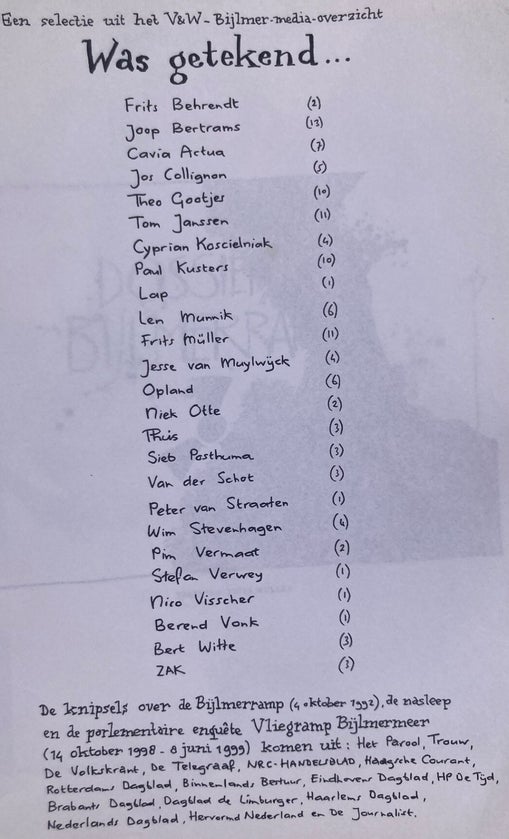 Een selectie uit het V&W-Bijlmer-media-overzicht
Was getekend...
Frits Behrendt (2)
Joop Bertrams (13)
Cavia Actua (7)
Jos Collignon (5)
Theo Gootjes (10)
Tom Janssen (11)
Cyprian Koscielniak (4)
Paul Kusters (10)
Lap (1)
Len Munnik (6)
Frits Müller (11)
Jesse van Muylwijck (4)
Opland (6)
Niek Otte (2)
Thuis (3)
Sieb Posthuma (3)
Van der Schot (3)
Peter van Straaten (1)
Wim Stevenhagen (4)
Pim Vermaat (2)
Stefan Verwey (1)
Nico Visscher (1)
Berend Vonk (1)
Bert Witte (3)
ZAK (3)
De knipsels over de Bijlmerramp (4 oktober 1992), de nasleep
en de parlementaire enquête Vliegramp Bijlmermeer
(14 oktober 1998 - 8 juni 1999) komen uit: Het Parool, Trouw,
De Volkskrant, De Telegraaf, NRC-HANDELSBLAD, Haagsche Courant,
Rotterdams Dagblad, Binnenlands Bestuur, Eindhovens Dagblad, HP De Tijd,
Brabants Dagblad, Dagblad de Limburger, Haarlems Dagblad,
Nederlands Dagblad, Hervormd Nederland en De Journalist.
DOSSIER
BIJLMERRA